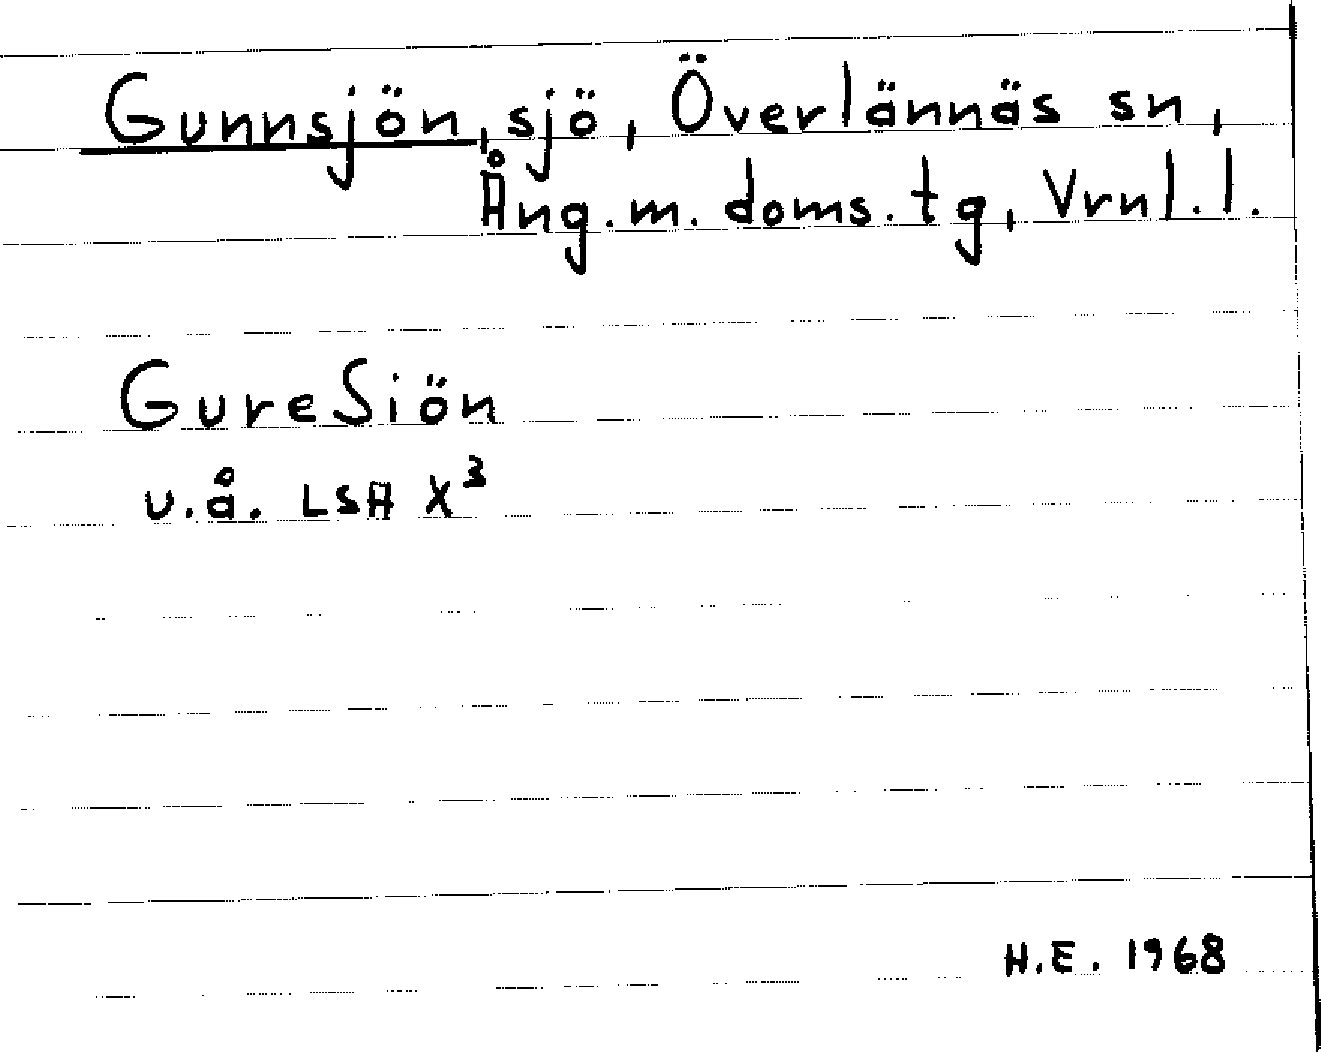 Gunnsjön, sjö, Överlännäs sn,
Ång. m. doms. tg, Vrnl. l.
GureSiön
u.å. LSA X³
H.E. 1968